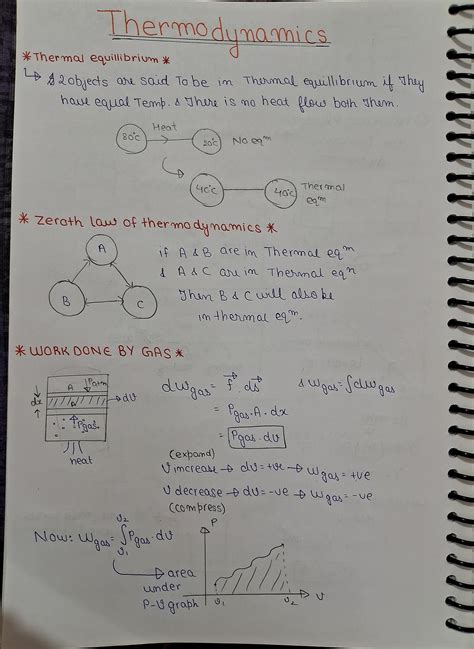 Thermodynamics
*Thermal equillibrium*
↳ 2 objects are said To be in Thermal equillibrium if They
have equal Temp. & There is no heat flow both Them.
80°C Heat 20°C No eqm
40°C 40°C Thermal eqm
* Zeroth law of thermodynamics *
A B C
if A & B are in Thermal eqm
& A & C are in Thermal eqm
Then B & C will also be
in thermal eqm.
* WORK DONE BY GAS *
A Patm
dx dv
Pgas
heat
dwgas = f⃗ . ds⃗ & wgas = ∫dwgas
= Pgas.A.dx
= Pgas.dv
(expand)
V increase → dv = +ve → wgas = +ve
V decrease → dv = -ve → wgas = -ve
(compress)
Now: wgas = ∫ᵥ₁ᵛ² Pgas.dv
→ area
under
P-V graph
P
v₁ v₂ v